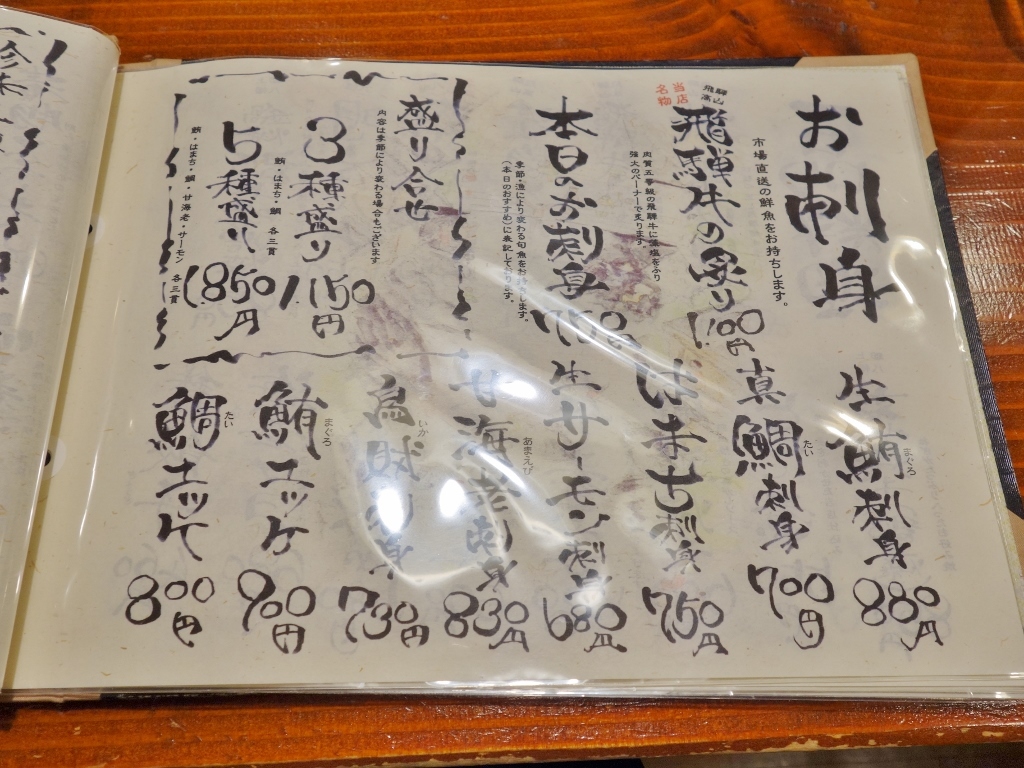 お刺身
市場直送の鮮魚をお待ちします。
当店名物
飛騨高山
飛騨牛の炙り
肉質五等級の飛騨牛に藻塩をふり
強火のバーナーで炙ります。
1,100円
本日のお刺身
季節・漁により変わる旬魚をお待ちします。
(本日のおすすめ)に表記しております。
盛り合せ
内容は季節により変わる場合もございます
3種盛り
鮪・はまち・鯛 各三貫
1,150円
5種盛り
鮪・はまち・鯛・甘海老・サーモン 各三貫
1,850円
生鮪刺身
まぐろ
880円
真鯛刺身
たい
700円
はまち刺身
750円
生サーモン刺身
680円
甘海老刺身
あまえび
830円
烏賊刺身
いか
730円
鮪ユッケ
まぐろ
900円
鯛ユッケ
たい
800円